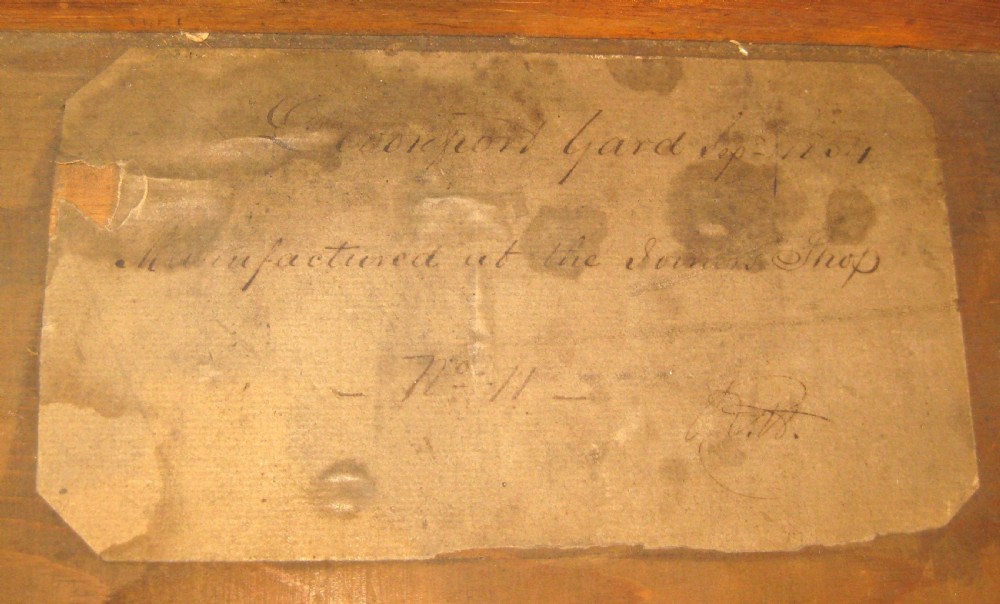 Devonport Yard Sepr
Manufactured at the Joiners Shop
– No. 11 –